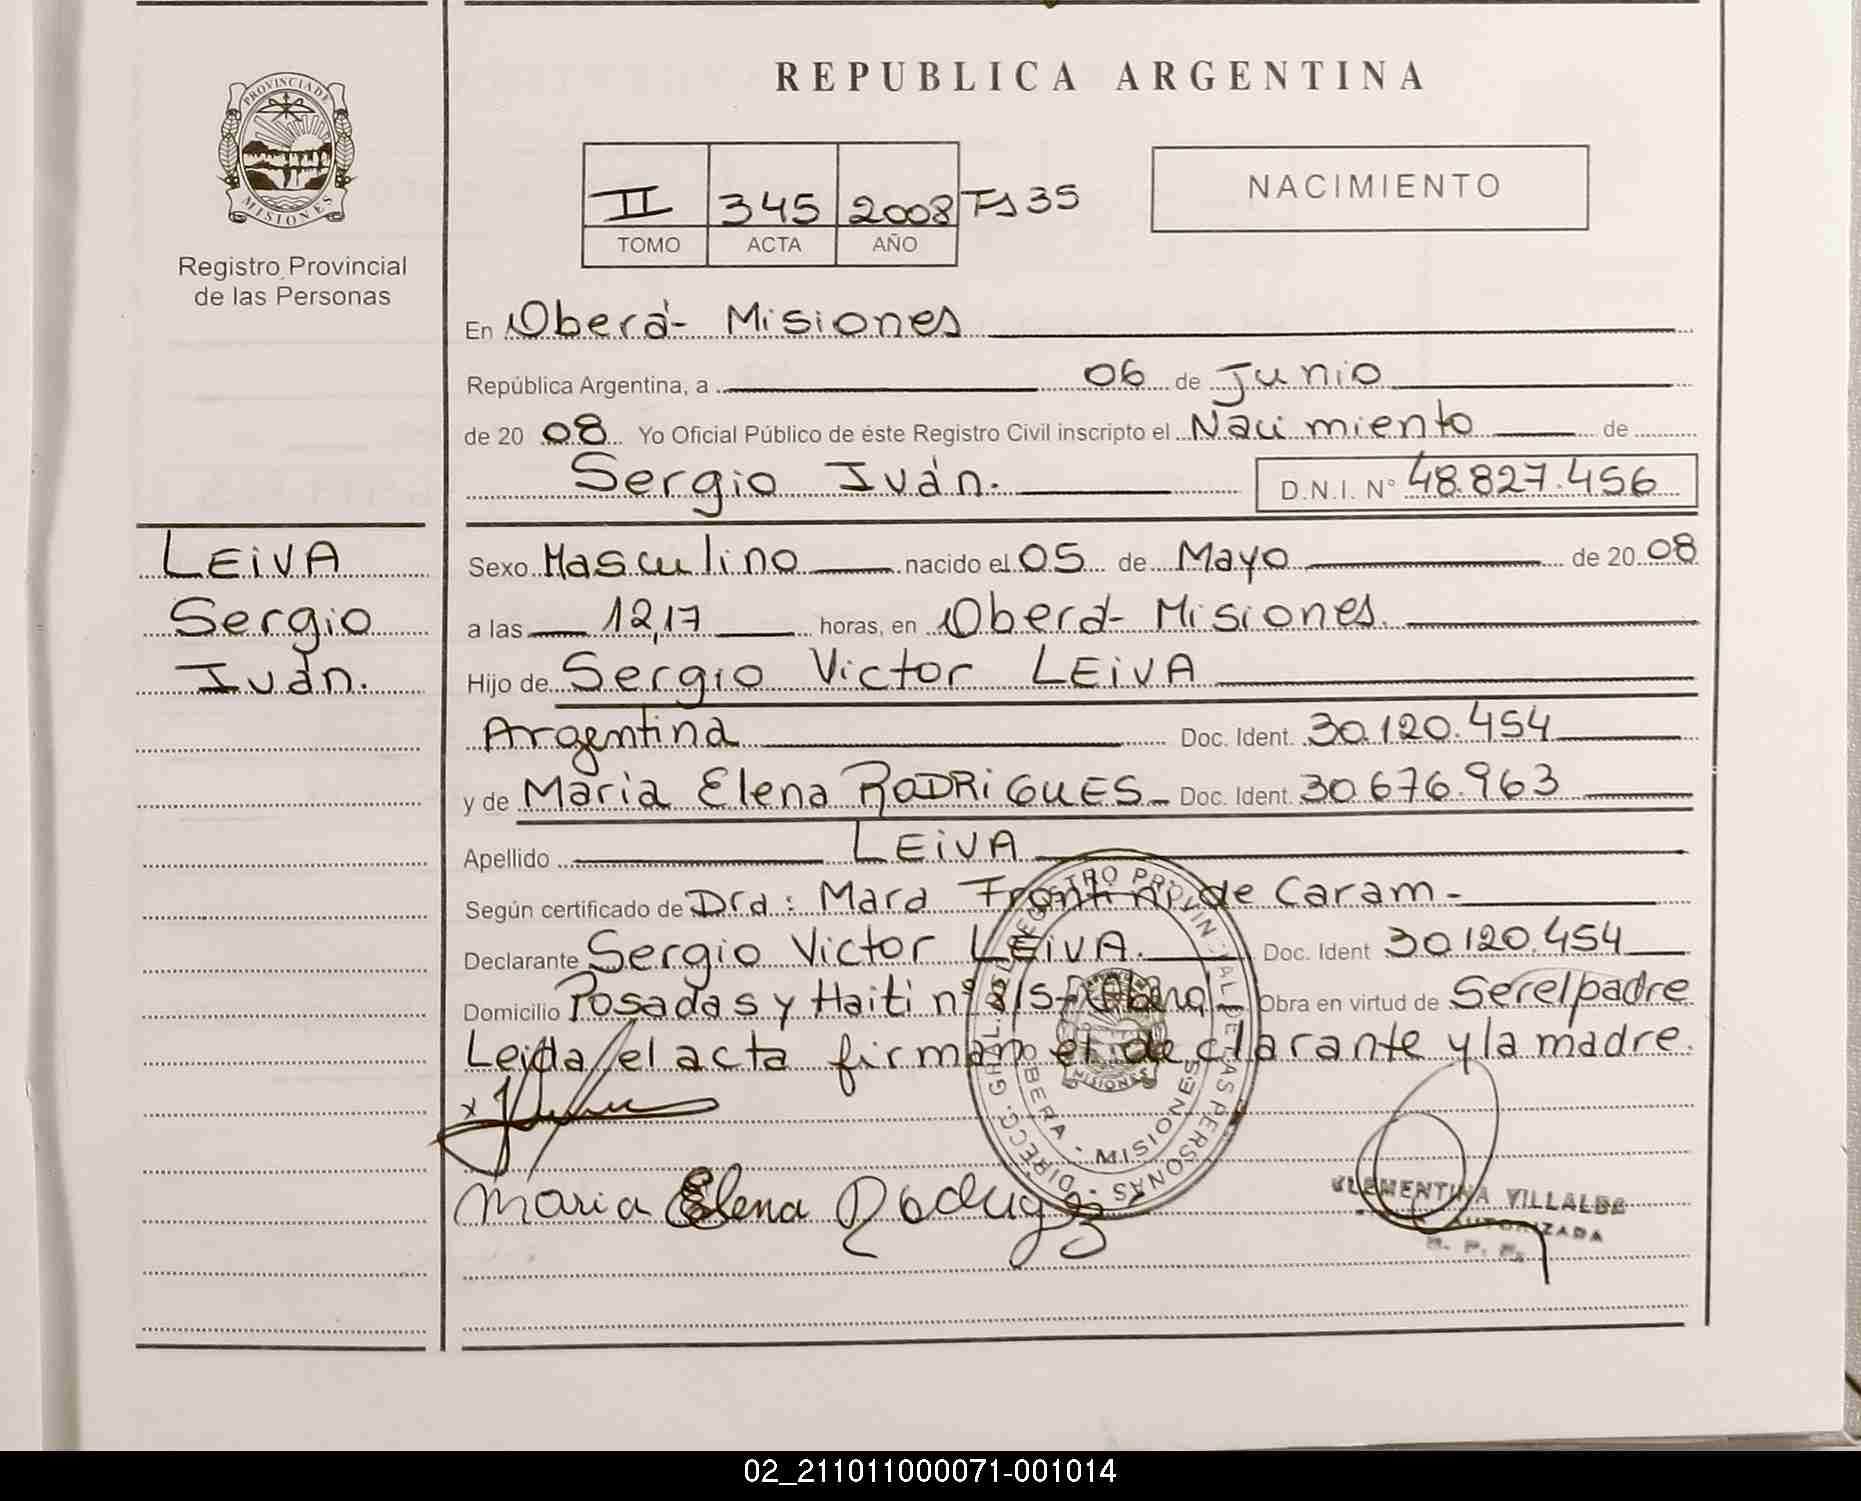 PROVINCIA DE
MISIONES
Registro Provincial
de las Personas
LEIVA
Sergio
Iván.
REPUBLICA ARGENTINA
II 345 2008 Fs 35
TOMO ACTA AÑO
NACIMIENTO
En Oberá- Misiones
República Argentina, a 06 de Junio
de 20 08 Yo Oficial Público de éste Registro Civil inscripto el Nacimiento de
Sergio Iván. D.N.I. N° 48.827.456
Sexo Masculino nacido el 05 de Mayo de 20 08
a las 12,17 horas, en Oberá- Misiones.
Hijo de Sergio Victor LEIVA
Argentina Doc. Ident. 30.120.454
y de Maria Elena RODRIGUES- Doc. Ident. 30.676.963
Apellido LEIVA
Según certificado de Dra: Mara Frontini de Caram-
Declarante Sergio Victor LEIVA. Doc. Ident 30.120.454
Domicilio Posadas y Haiti n° s/s- Oberá- Obra en virtud de Ser el padre
Leida el acta firman el declarante y la madre.
x
Maria Elena Rodriguez
DIRECC. GRAL. DEL REGISTRO PROVINCIAL DE LAS PERSONAS
OBERA - MISIONES
MISIONES
CLEMENTINA VILLALBA
AUTORIZADA
R. P. P.
02_211011000071-001014